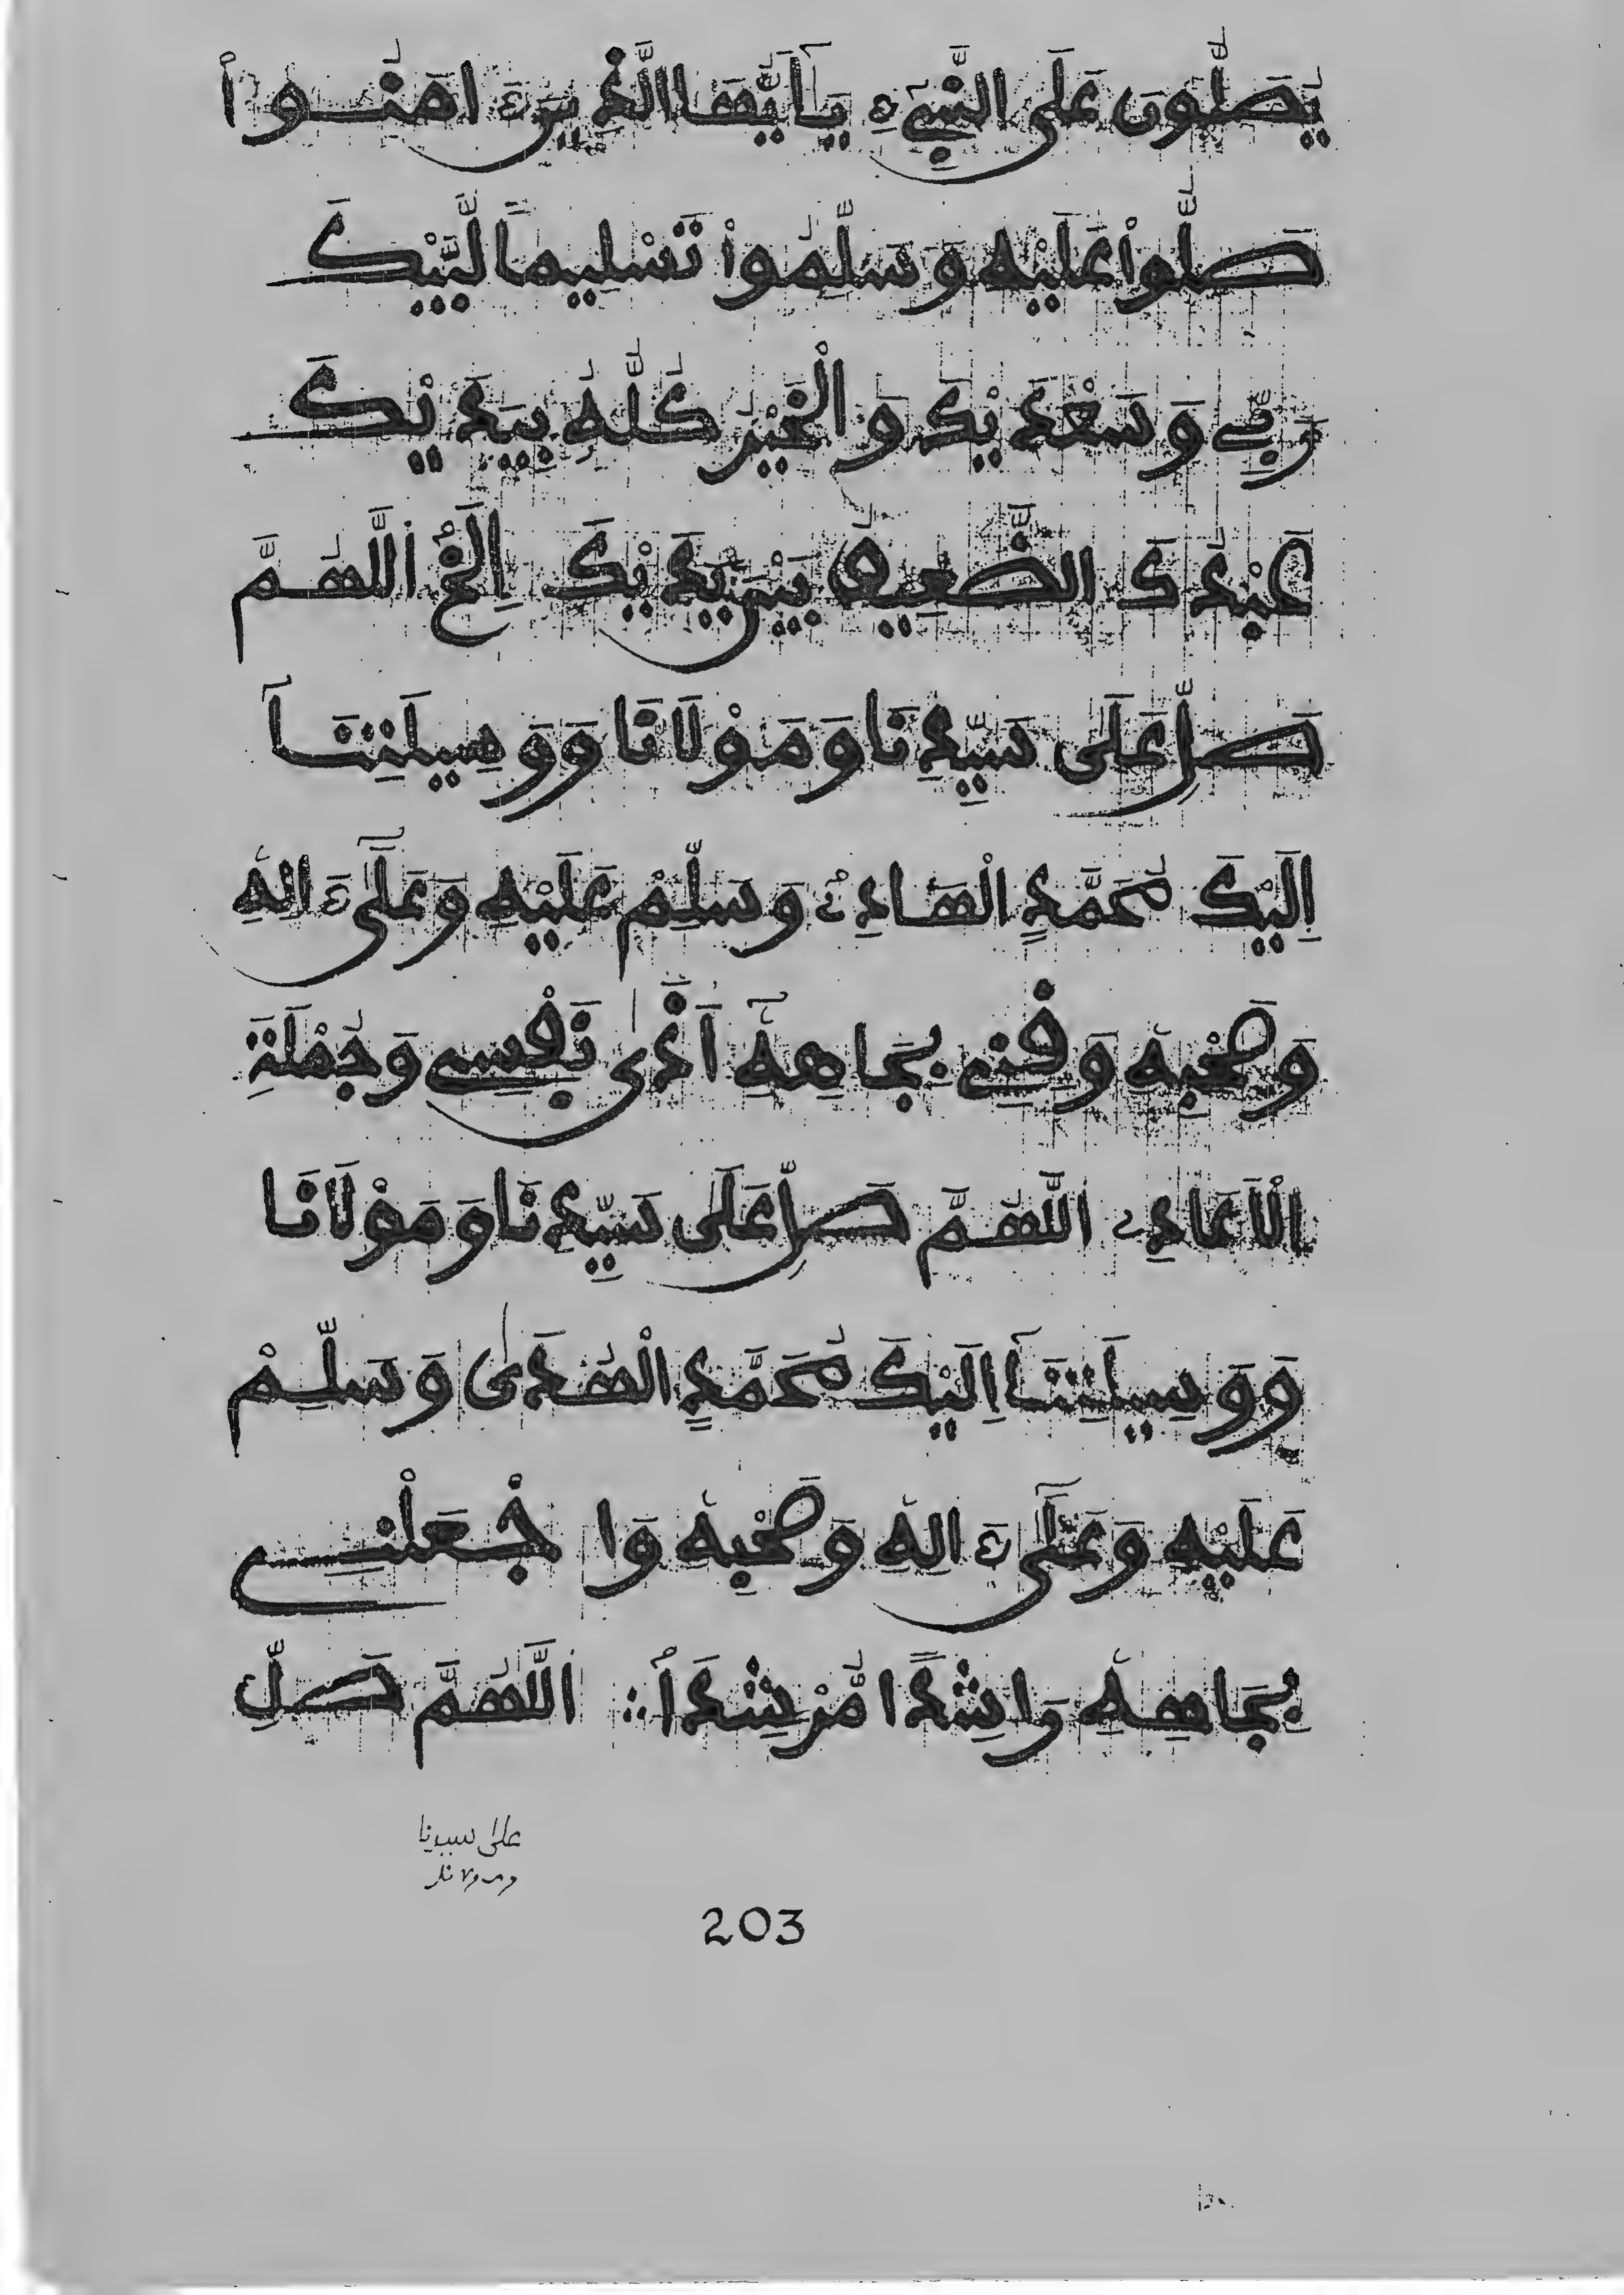 يُصَلُّونَ عَلَى النَّبِيِّ يَٰٓأَيُّهَا الَّذِينَ ءَامَنُوا۟
صَلُّوا۟ عَلَيْهِ وَسَلِّمُوا۟ تَسْلِيمًا لَبَّيْكَ
رَبِّي وَسَعْدَيْكَ وَالْخَيْرُ كُلُّهُ بِيَدَيْكَ
عَبْدُكَ الضَّعِيفُ بَيْنَ يَدَيْكَ إِلَخْ اللَّهُمَّ
صَلِّ عَلَى سَيِّدِنَا وَمَوْلَانَا وَوَسِيلَتِنَآ
إِلَيْكَ مُحَمَّدٍ الْهَادِي وَسَلِّمْ عَلَيْهِ وَعَلَىٰٓ ءَالِهِ
وَصَحْبِهِ وَقِنِي بِجَاهِهِۦٓ أَذَىٰ نَفْسِي وَجُمْلَةِ
الْأَعَادِي اللَّهُمَّ صَلِّ عَلَى سَيِّدِنَا وَمَوْلَانَا
وَوَسِيلَتِنَآ إِلَيْكَ مُحَمَّدٍ الْهُدَىٰ وَسَلِّمْ
عَلَيْهِ وَعَلَىٰٓ ءَالِهِ وَصَحْبِهِ وَاجْعَلْنِي
بِجَاهِهِ رَاشِدًا مُّرْشِدًا ؞ اللَّهُمَّ صَلِّ
على سيدنا
ومولانا
203